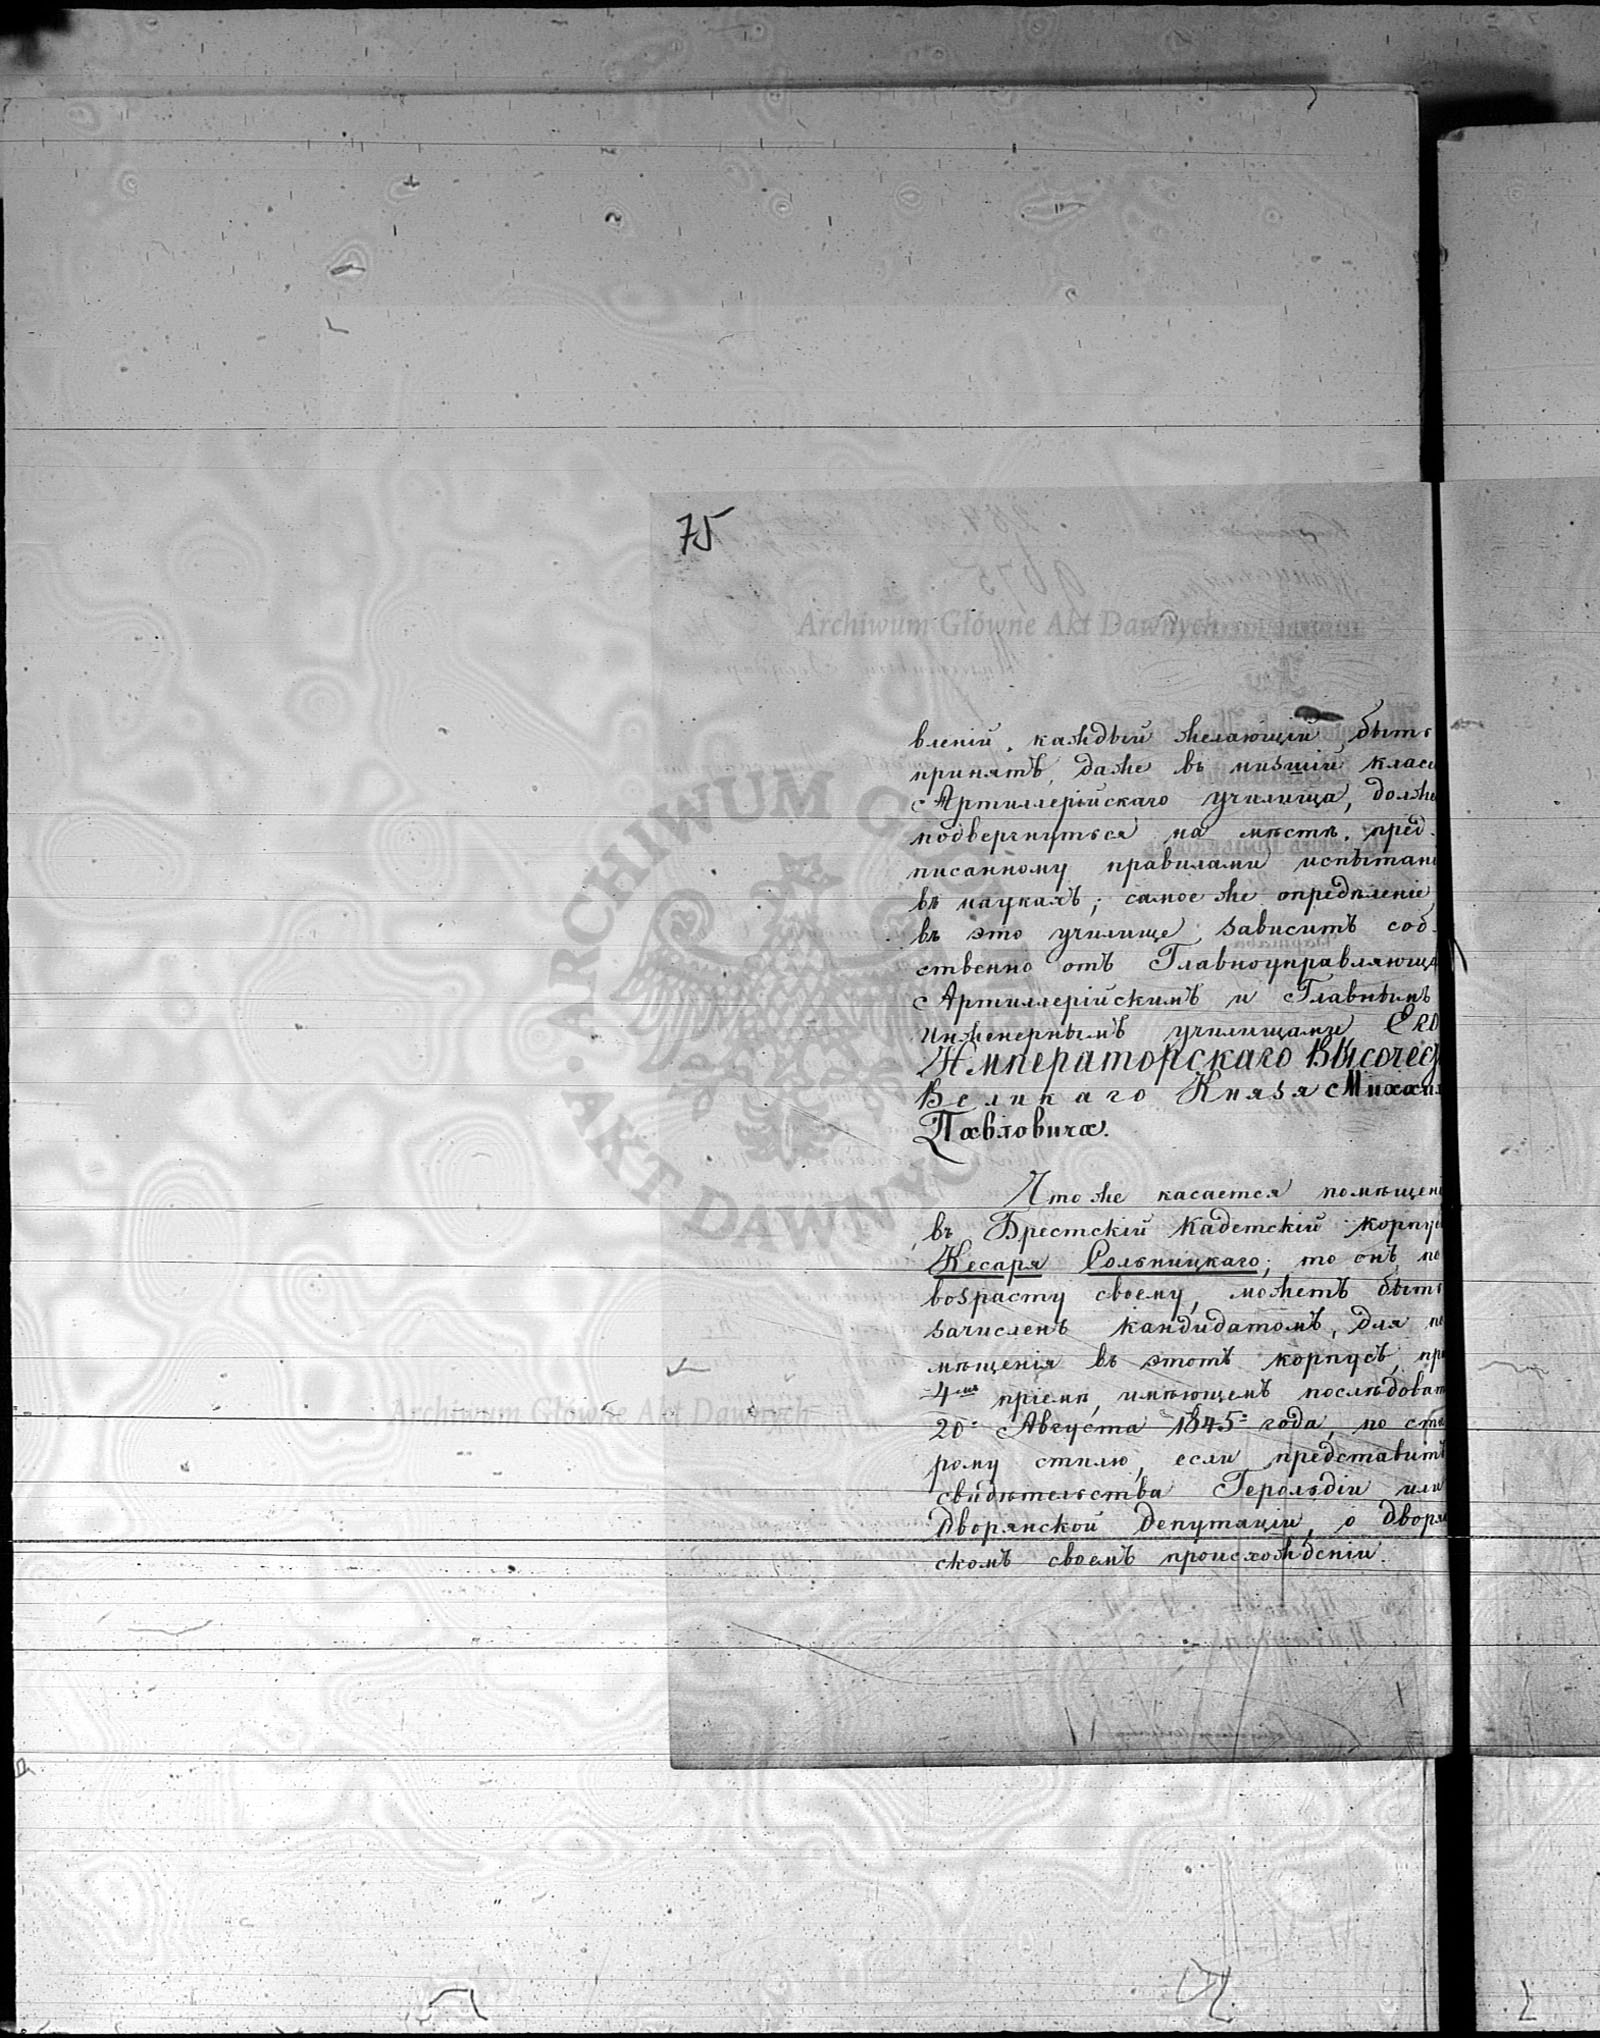 75
Archiwum Główne Akt Dawnych
вленій, каждый желающій быть
принятъ, даже въ низшій клас
Артиллерійскаго училища, долже
подвергнуться на мѣстѣ, пред-
писанному правилами испытані
въ наукахъ; самое же опредѣленіе
въ это училище, зависитъ соб-
ственно отъ Главноуправляюща
Артиллерійскимъ и Главнымъ
Инженернымъ училищами Его
Императорскаго Высочес
Великаго Князя Михаил
Павловича.
Что же касается помѣщені
въ Брестскій Кадетскій корпус
Кесаря Рольницкаго; то онъ, по
возрасту своему, можетъ быть
зачисленъ кандидатомъ, для по
мѣщенія въ этотъ корпусъ, при
4мъ пріемѣ, имѣющемъ послѣдоват
20. Августа 1845= года, по ста
рому стилю, если представитъ
свидѣтельства Герольдіи или
Дворянской депутаціи, о дворя
скомъ своемъ происхожденіи.
ARCHIWUM GŁÓWNE
AKT DAWNYCH
Archiwum Główne Akt Dawnych